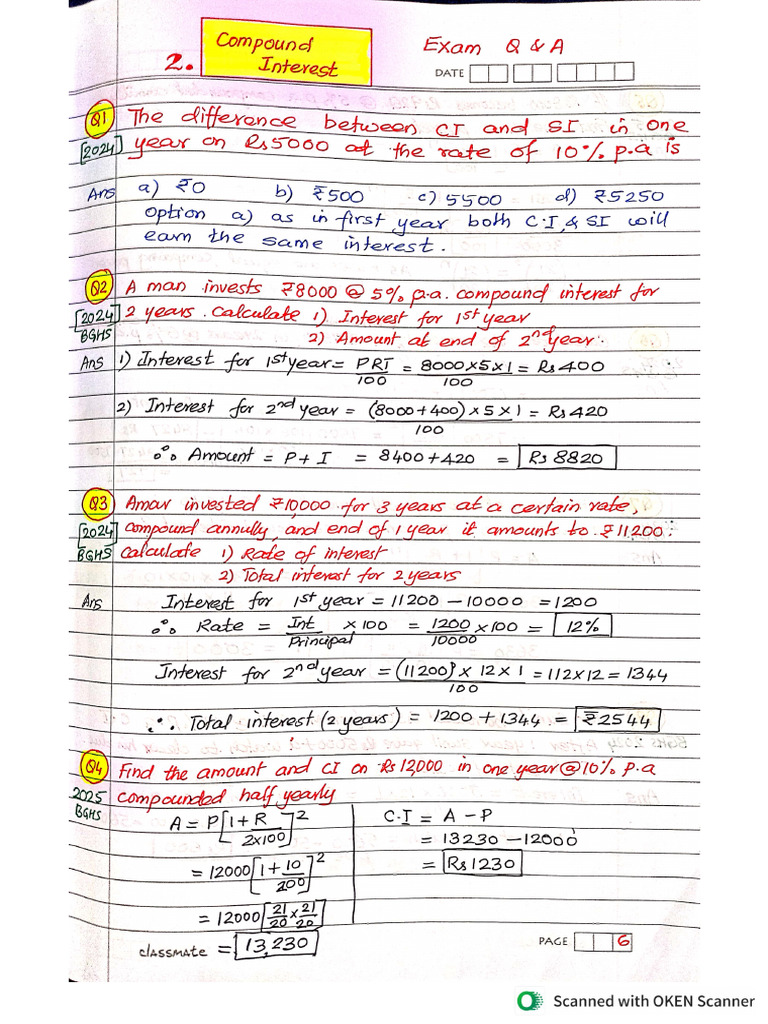 2. Compound Interest
Exam Q & A
DATE
Q1 The difference between CI and SI in one
[2024] year on Rs5000 at the rate of 10% p.a is
a) ₹0 b) ₹500 c) 5500 d) ₹5250
Ans option a) as in first year both C.I, & SI will
earn the same interest.
Q2 A man invests ₹8000 @ 5% p.a. compound interest for
[2024] 2 years. Calculate 1) Interest for 1st year
BGHS 2) Amount at end of 2nd year.
Ans 1) Interest for 1st year = PRT/100 = 8000x5x1/100 = Rs400
2) Interest for 2nd year = (8000+400)x5x1/100 = Rs420
∴ Amount = P+I = 8400+420 = Rs 8820
Q3 Amar invested ₹10,000 for 3 years at a certain rate,
[2024] compound annully, and end of 1 year it amounts to ₹11,200.
BGHS Calculate 1) Rate of interest
2) Total interest for 2 years
Ans Interest for 1st year = 11200 - 10000 = 1200
∴ Rate = Int/Principal x100 = 1200/10000 x100 = 12%
Interest for 2nd year = (11200) x 12 x 1/100 = 112x12 = 1344
∴ Total interest (2 years) = 1200 + 1344 = ₹2544
Q4 Find the amount and CI on Rs 12,000 in one year @ 10% p.a
2025 compounded half yearly
BGHS
A = P[1+R/2x100]²
= 12000[1+10/200]²
= 12000[21/20 x 21/20]
= 13,230
C.I = A - P
= 13230 - 12000
= Rs 1230
classmate
PAGE 6
Scanned with OKEN Scanner